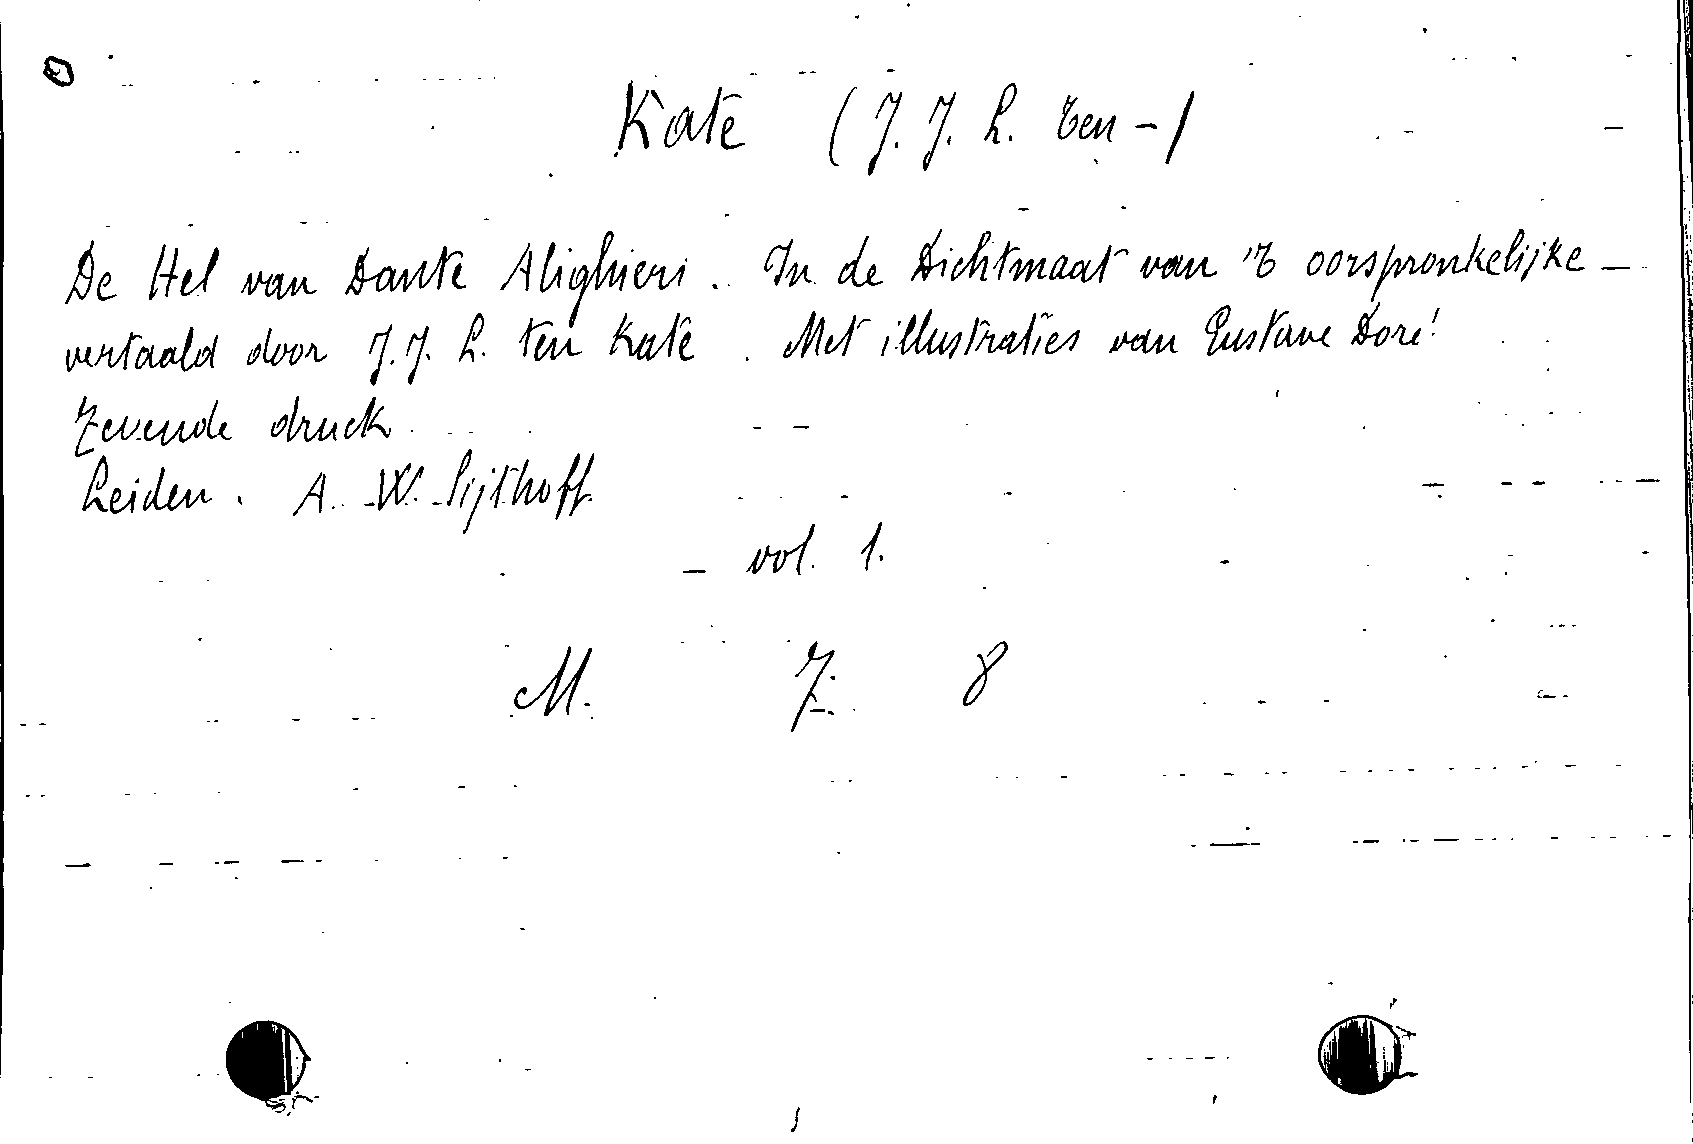 Kate (J. J. L. ten -)
De Hel van Dante Alighieri. In de Dichtmaat van 't oorspronkelijke -
vertaald door J. J. L. ten Kate. Met illustraties van Gustave Doré
Zevende druk
Leiden. A. W. Sijthoff
- vol. 1.
M. Z. 8